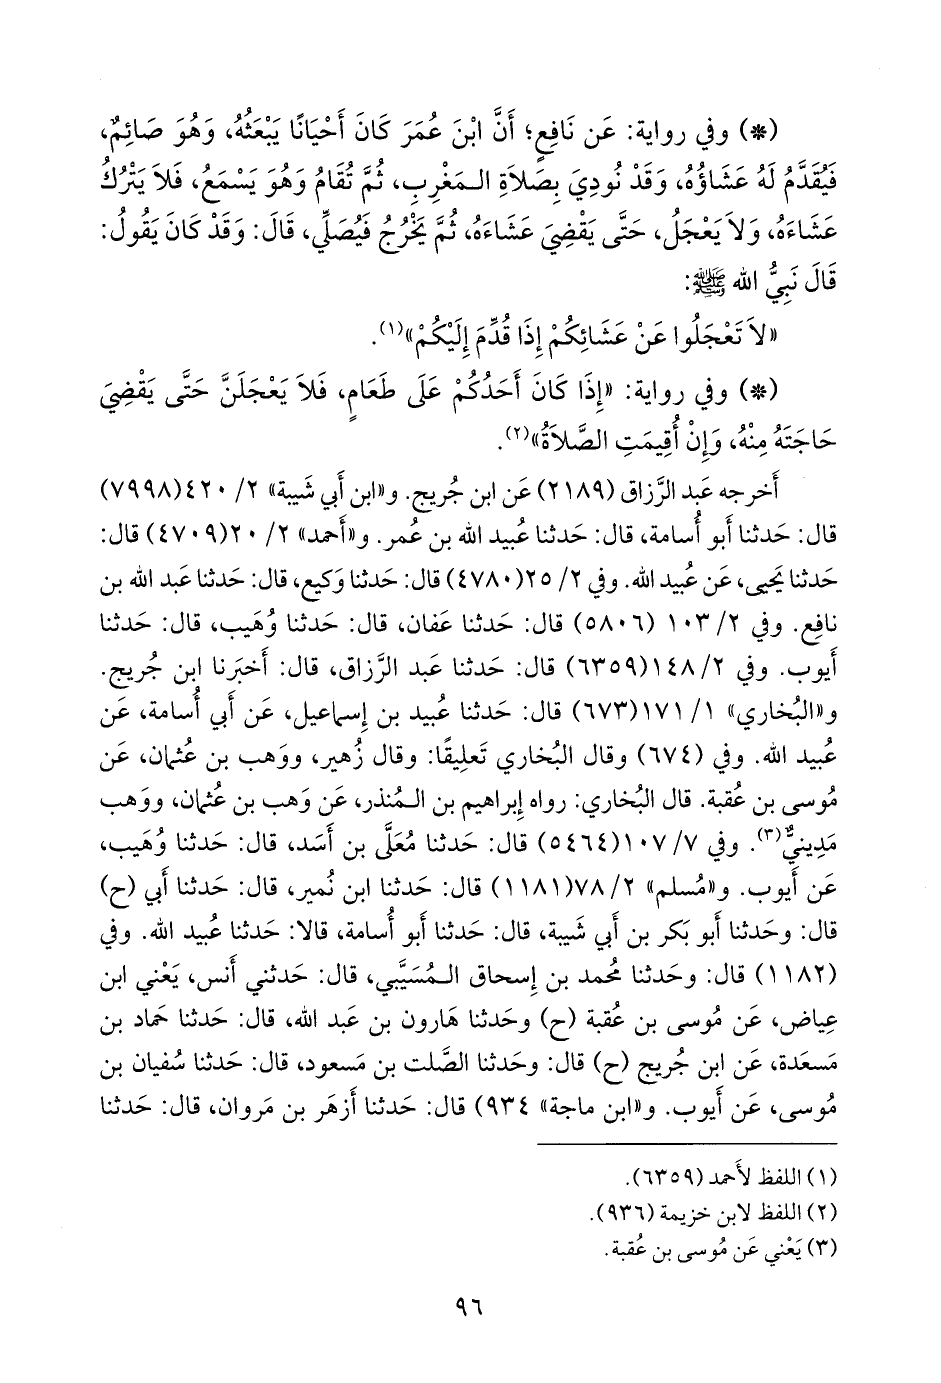 (*) وفي رواية: عَن نَافِعٍ؛ أَنَّ ابْنَ عُمَرَ كَانَ أَحْيَانًا يَبْعَثُهُ، وَهُوَ صَائِمٌ،
فَيُقَدَّمُ لَهُ عَشَاؤُهُ، وَقَدْ نُودِيَ بِصَلاَةِ الـمَغْرِبِ، ثُمَّ تُقَامُ وَهُوَ يَسْمَعُ، فَلاَ يَتْرُكُ
عَشَاءَهُ، وَلاَ يَعْجَلُ، حَتَّى يَقْضِيَ عَشَاءَهُ، ثُمَّ يَخْرُجُ فَيُصَلِّي، قَالَ: وَقَدْ كَانَ يَقُولُ:
قَالَ نَبِيُّ الله ﷺ:
«لاَ تَعْجَلُوا عَنْ عَشَائِكُمْ إِذَا قُدِّمَ إِلَيْكُمْ»(١).
(*) وفي رواية: «إِذَا كَانَ أَحَدُكُمْ عَلَى طَعَامٍ، فَلاَ يَعْجَلَنَّ حَتَّى يَقْضِيَ
حَاجَتَهُ مِنْهُ، وَإِنْ أُقِيمَتِ الصَّلاَةُ»(٢).
أَخرجه عَبد الرَّزاق (٢١٨٩) عَن ابن جُريج. و«ابن أَبي شَيبة» ٢/ ٤٢٠(٧٩٩٨)
قال: حَدثنا أَبو أُسامة، قال: حَدثنا عُبيد الله بن عُمر. و«أَحمد» ٢/ ٢٠(٤٧٠٩) قال:
حَدثنا يَحيى، عَن عُبيد الله. وفي ٢/ ٢٥(٤٧٨٠) قال: حَدثنا وَكيع، قال: حَدثنا عَبد الله بن
نافِع. وفي ٢/ ١٠٣ (٥٨٠٦) قال: حَدثنا عَفان، قال: حَدثنا وُهَيب، قال: حَدثنا
أَيوب. وفي ٢/ ١٤٨(٦٣٥٩) قال: حَدثنا عَبد الرَّزاق، قال: أَخبَرنا ابن جُريج.
و«البُخاري» ١/ ١٧١(٦٧٣) قال: حَدثنا عُبيد بن إِسماعيل، عَن أَبي أُسامة، عَن
عُبيد الله. وفي (٦٧٤) وقال البُخاري تَعليقًا: وقال زُهير، ووَهب بن عُثمان، عَن
مُوسى بن عُقبة. قال البُخاري: رواه إِبراهيم بن الـمُنذر، عَن وَهب بن عُثمان، ووَهب
مَدِينيٌّ(٣). وفي ٧/ ١٠٧(٥٤٦٤) قال: حَدثنا مُعَلَّى بن أَسَد، قال: حَدثنا وُهَيب،
عَن أَيوب. و«مُسلم» ٢/ ٧٨(١١٨١) قال: حَدثنا ابن نُمير، قال: حَدثنا أَبي (ح)
قال: وحَدثنا أَبو بَكر بن أَبي شَيبة، قال: حَدثنا أَبو أُسامة، قالا: حَدثنا عُبيد الله. وفي
(١١٨٢) قال: وحَدثنا مُحمد بن إِسحاق الـمُسَيَّبي، قال: حَدثني أَنس، يَعْني ابن
عِياض، عَن مُوسى بن عُقبة (ح) وحَدثنا هَارون بن عَبد الله، قال: حَدثنا حَماد بن
مَسعَدة، عَن ابن جُريج (ح) قال: وحَدثنا الصَّلت بن مَسعود، قال: حَدثنا سُفيان بن
مُوسى، عَن أَيوب. و«ابن ماجة» ٩٣٤) قال: حَدثنا أَزهَر بن مَروان، قال: حَدثنا
(١) اللفظ لأَحمد (٦٣٥٩).
(٢) اللفظ لابن خزيمة (٩٣٦).
(٣) يَعْني عَن مُوسى بن عُقبة.
٩٦